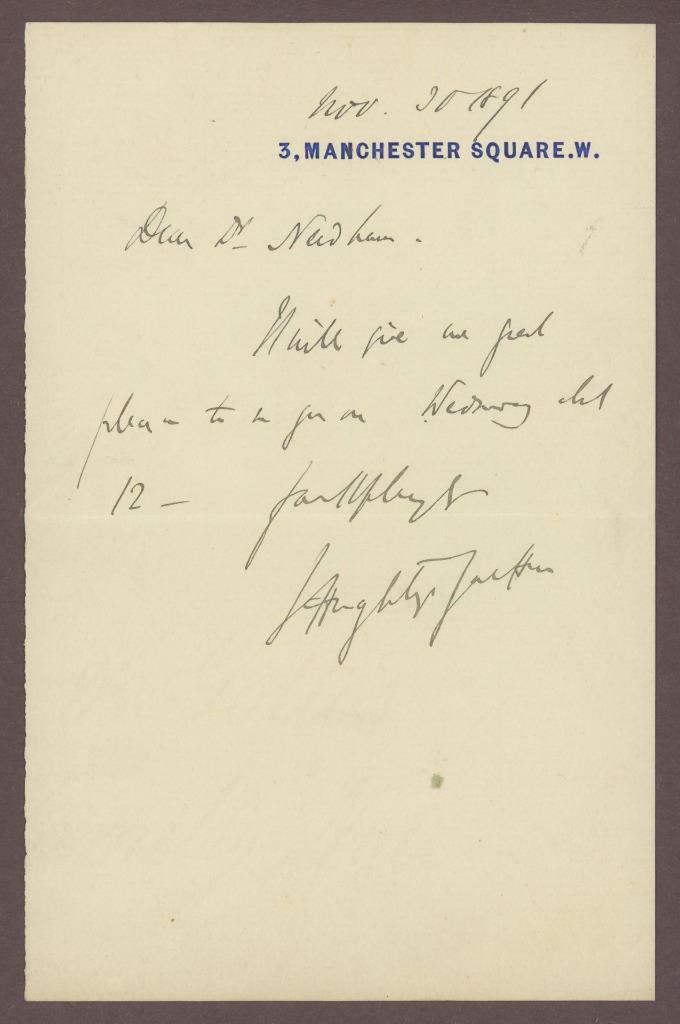 Nov. 30 1891
3, MANCHESTER SQUARE.W.
Dear Dr Needham.
It will give me great
pleasure to see you on Wednesday at
12 — Faithfully yrs
J Hughlings Jackson